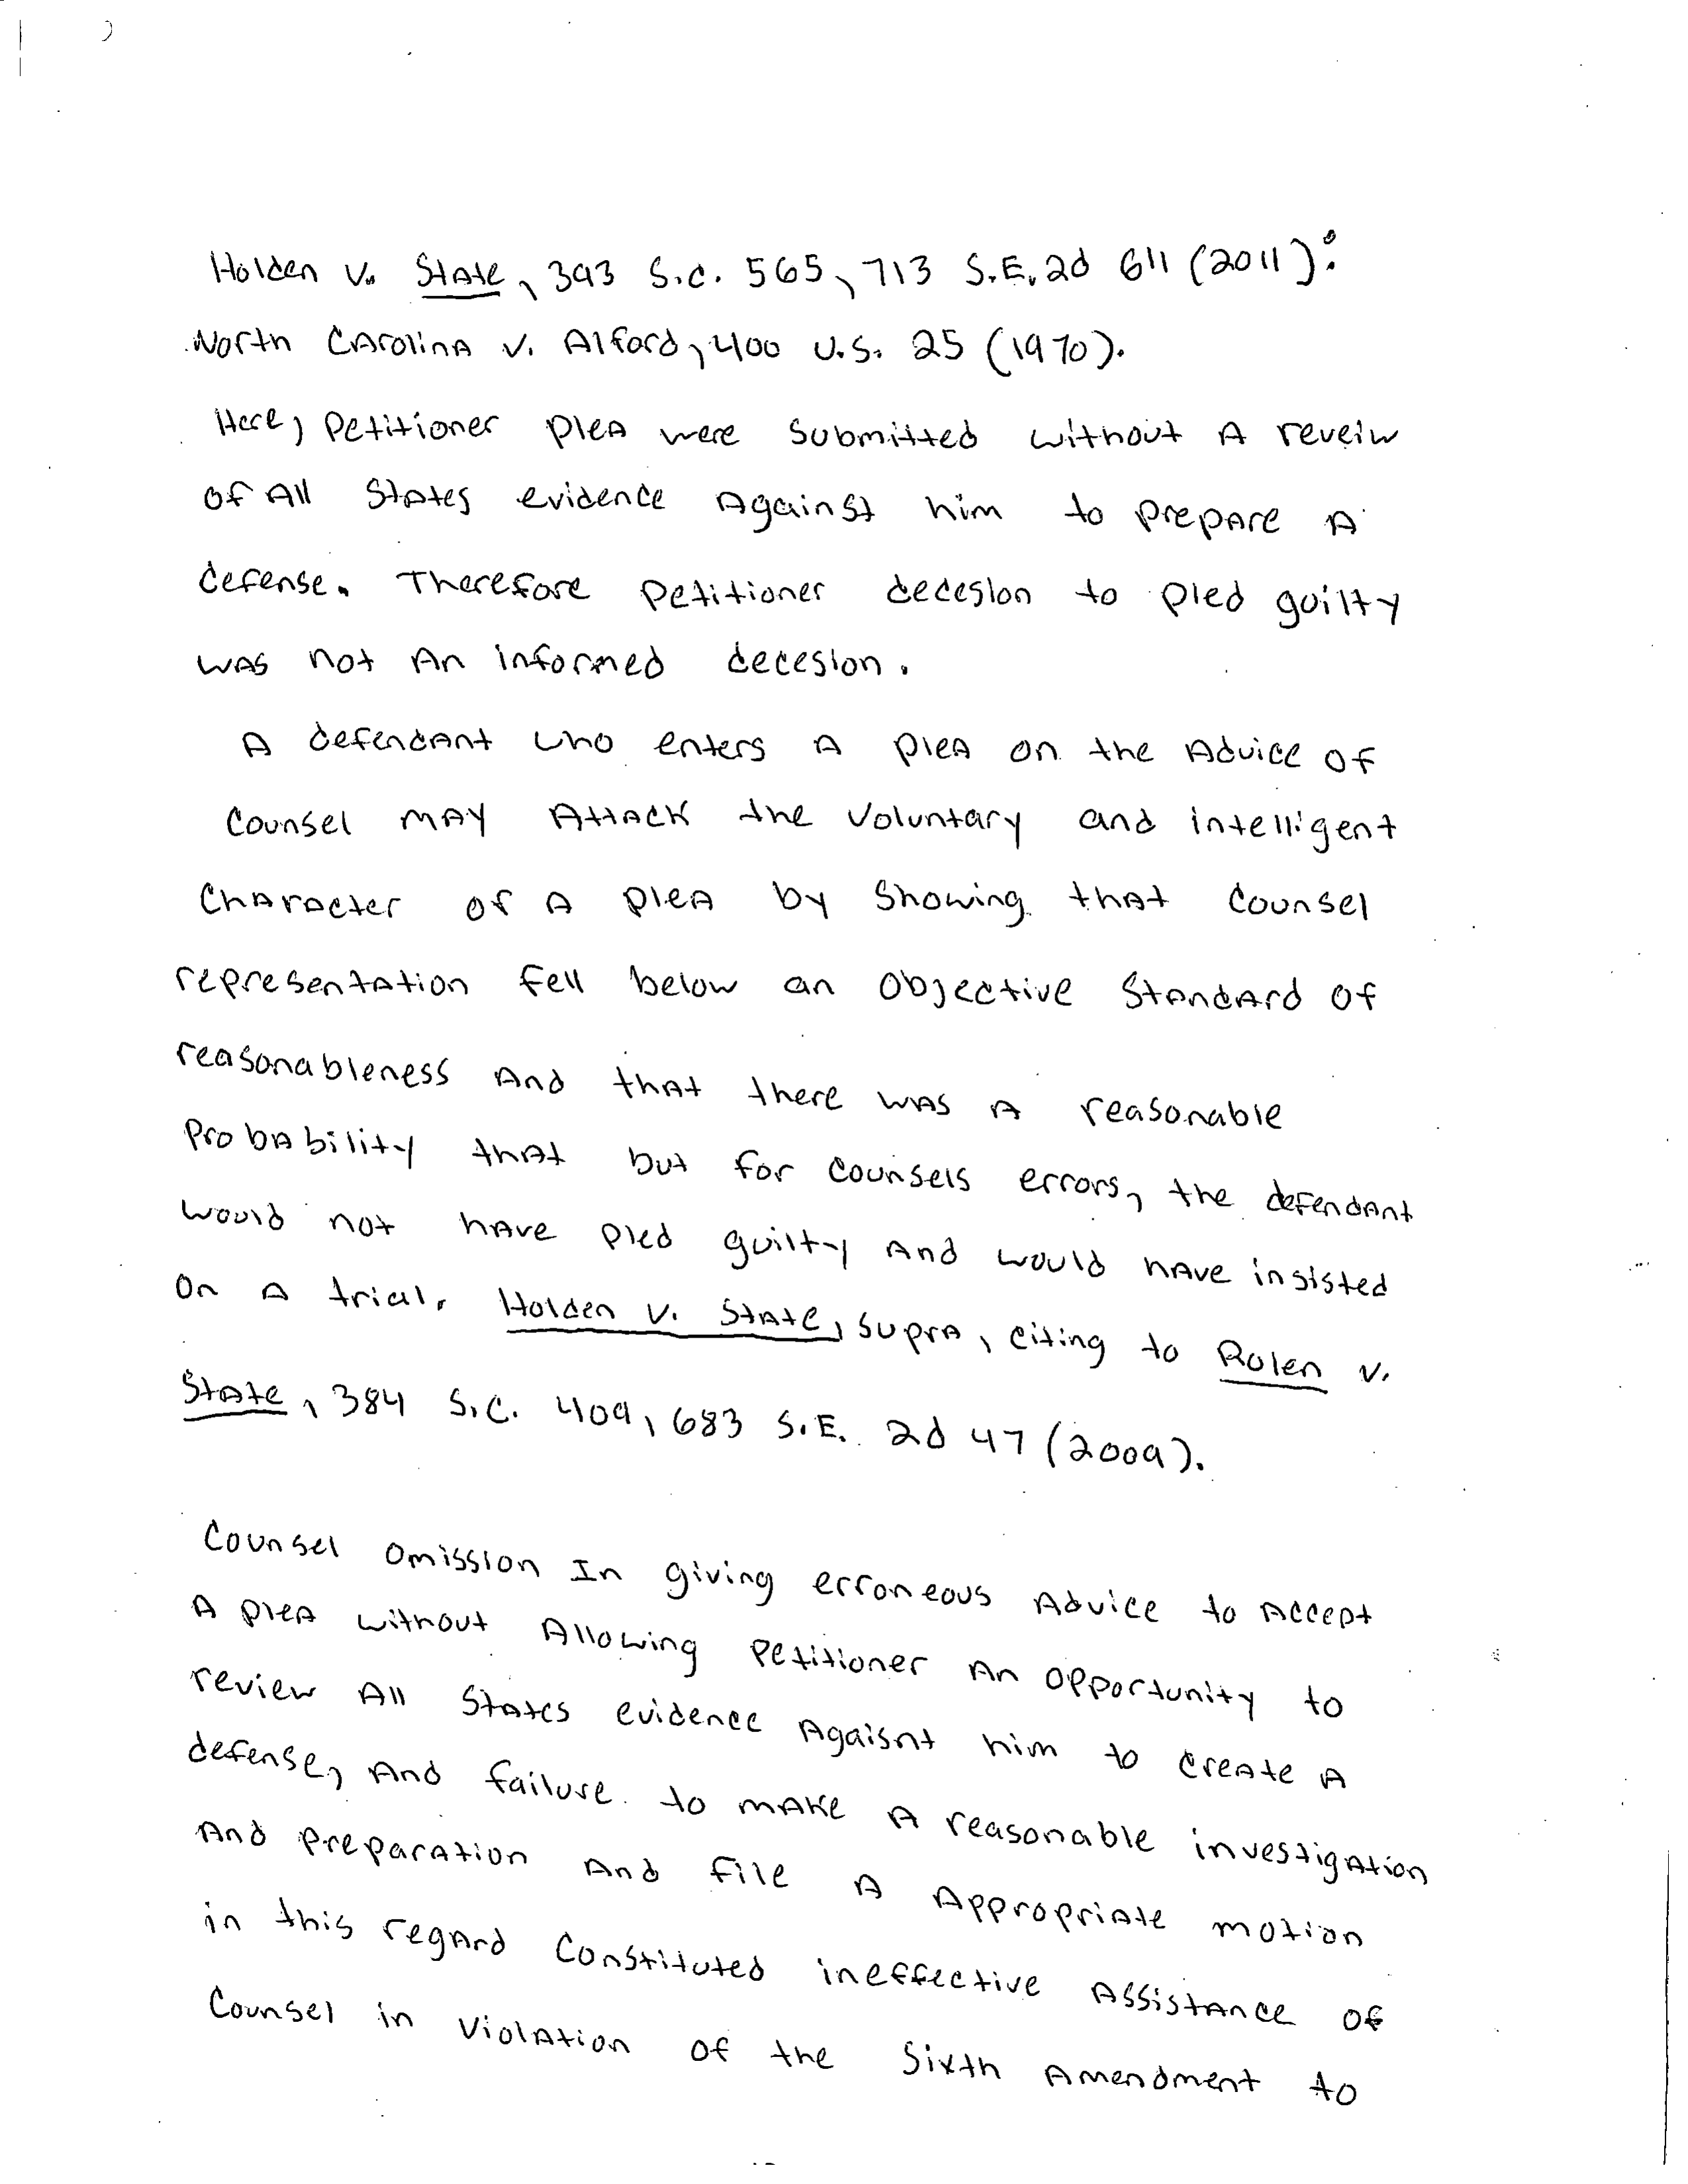 Holden v. State, 393 S.C. 565, 713 S.E.2d 611 (2011):
North Carolina v. Alford, 400 U.S. 25 (1970).
Here, Petitioner plea were submitted without A reveiw
of All States evidence Against him to prepare A
defense. Therefore Petitioner decesion to pled guilty
was not An informed decesion.
A defendant who enters A plea on the Advice of
Counsel may Attack the voluntary and intelligent
Character of A plea by showing that counsel
representation fell below an objective standard of
reasonableness And that there was A reasonable
Probability that but for counsels errors, the defendant
would not have pled guilty And would have insisted
on A trial. Holden v. State, supra, citing to Rolen v.
State, 384 S.C. 409, 683 S.E. 2d 47 (2009).
Counsel omission In giving erroneous Advice to Accept
A plea without Allowing Petitioner An opportunity to
review All States evidence Agaisnt him to create A
defense, And failure to make A reasonable investigation
And preparation And file A Appropriate motion
in this regard Constituted ineffective Assistance of
Counsel in violation of the Sixth Amendment to